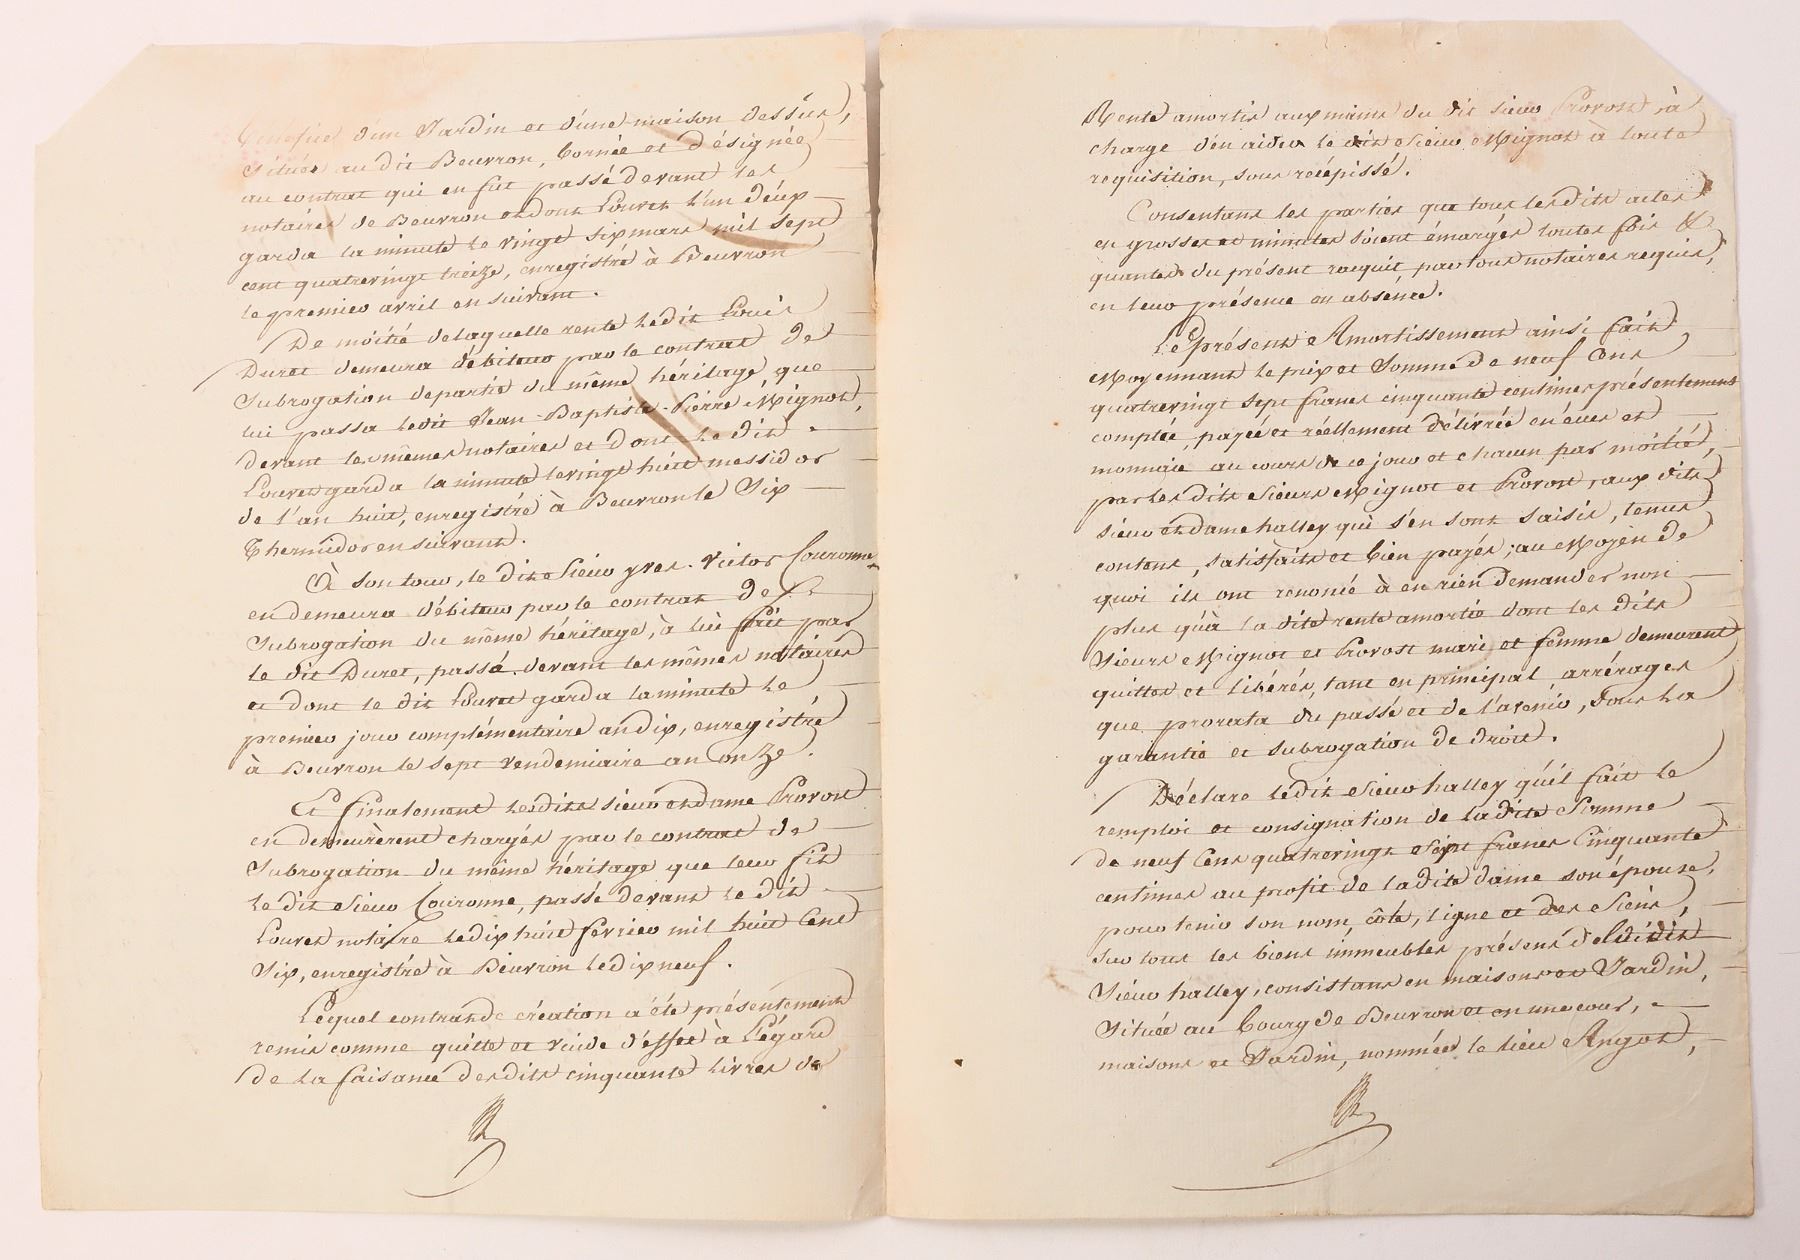 d'un Jardin et d'une maison dessus,
située au dit Beuvron, bornée et désignée
au contrat qui en fut passé devant les
notaires de Beuvron et dont Louvet l'un d'eux
garda la minute le vingt six mars mil sept
cent quatrevingt treize, enregistré à Beuvron
le premier avril en suivant.
De moitié de laquelle rente ledit Louis
Duret demeura débiteur par le contrat de
subrogation de partie du même héritage, que
lui passa ledit Jean-Baptiste-Pierre Mignot,
devant les mêmes notaires et dont le dit
Louvet garda la minute le vingt huit messidor
de l'an huit, enregistré à Beuvron le Six
Thermidor en suivant.
À son tour, le dit Sieur yves-Victor Couronne
en demeura débiteur par le contrat de
subrogation du même héritage, à lui fait par
le dit Duret, passé devant les mêmes notaires
et dont le dit Louvet garda la minute le
premier jour complémentaire an dix, enregistré
à Beuvron le sept vendemiaire an onze.
Et finalement lesdits sieur et dame Provost
en demeurèrent chargés par le contrat de
subrogation du même héritage que leur fit
le dit Sieur Couronne, passé devant le dit
Louvet notaire le dix huit février mil huit Cent
Six, enregistré à Beuvron le dix neuf.
Lequel contrat de création a été présentement
remis comme quitte et vuide d'effet à l'égard
de la faisance desdits cinquante livres de
Rente amortis aux mains du dit sieur Provost, à
charge d'en aider le dit Sieur Mignot à toute
requisition, sous récépissé.
Consentant les parties que tous lesdits actes
en grosses et minutes soient émargés toutes fois &
quantes du présent racquit par tous notaires requis,
en leur présence ou absence.
Le présent Amortissement ainsi fait
Moyennant le prix et Somme de neuf Cent
quatrevingt sept francs cinquante centimes présentement
comptée, payée et réellement délivrée en écus et
monnaie au cours de ce jour et chacun par moitié,
par les dits Sieurs Mignot et Provost, aux dits
sieur et dame halley qui s'en sont saisis, tenus
contens, satisfaits et bien payés; au Moyen de
quoi ils ont renoncé à en rien demander non
plus qu'à la dite rente amortie dont les dits
Sieurs Mignot et Provost mari et femme demeurent
quittes et libérés, tant en principal arrérages
que prorata du passé et de l'avenir, sous la
garantie et subrogation de droit.
Déclare ledit Sieur halley qu'il fait le
remploi et consignation de ladite Somme
de neuf Cent quatrevingt Sept francs Cinquante
centimes au profit de ladite dame son épouse,
pour tenir son nom, côté, ligne et des Siens,
sur tous les biens immeubles présens dudit
Sieur halley, consistans en maisons et Jardin,
située au bourg de Beuvron et en une cour,
maisons et Jardin, nommées le lieu Angot,